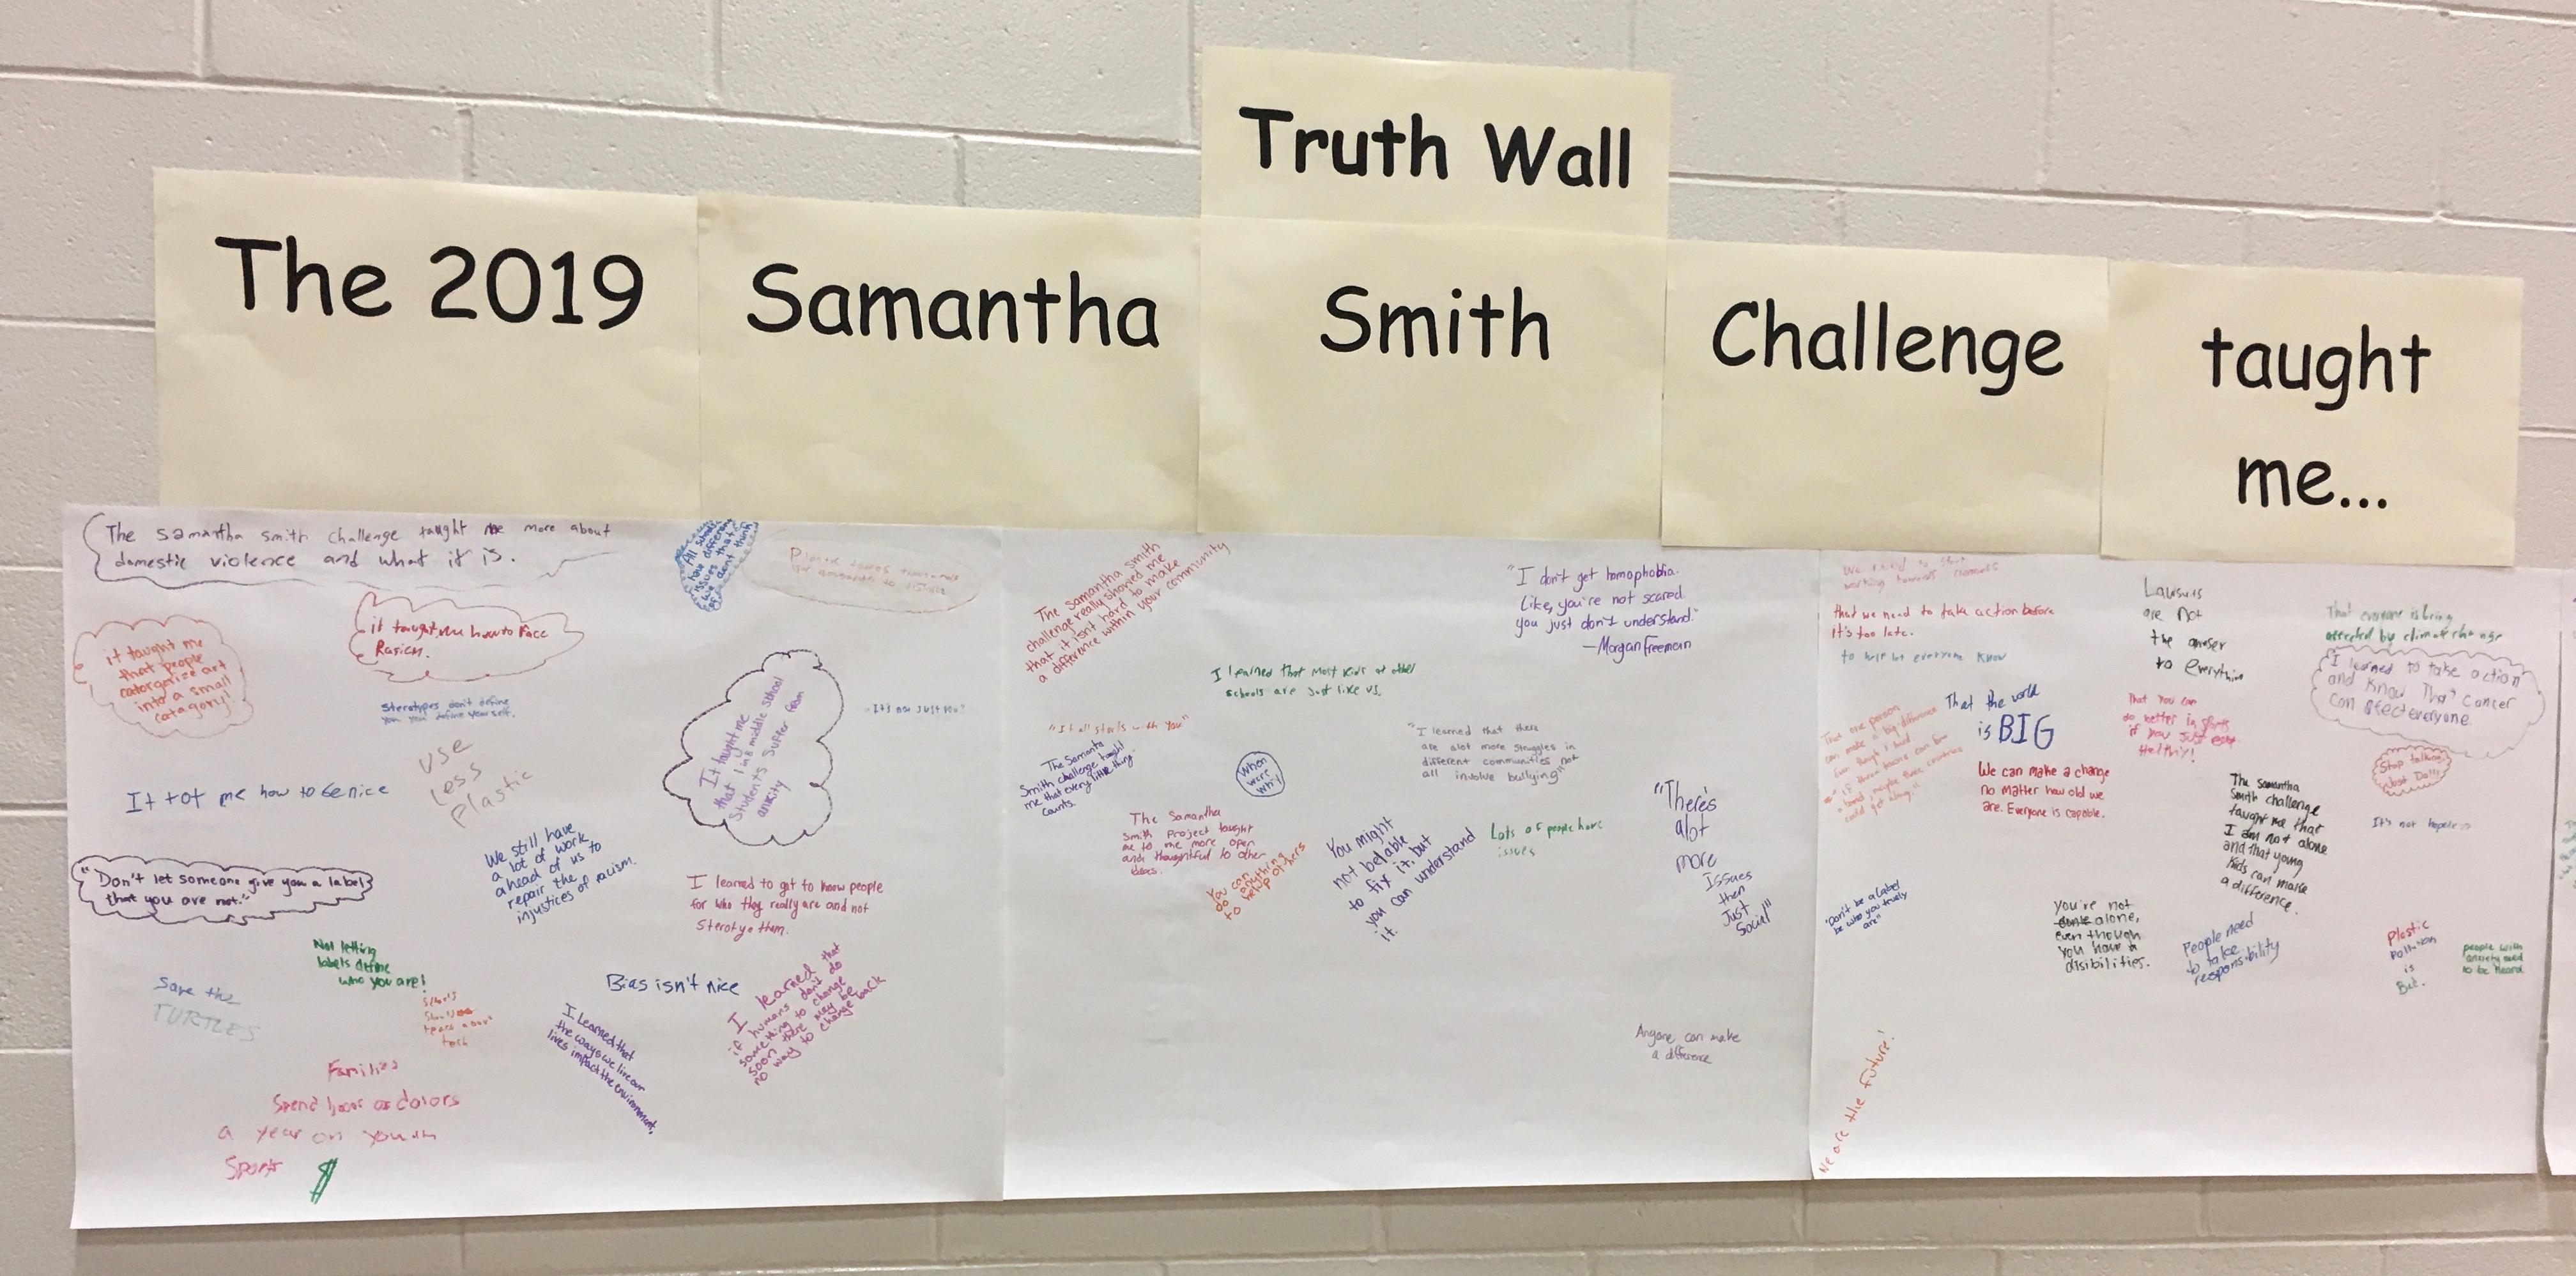 Truth Wall
The 2019
Samantha
Smith
Challenge
taught
me...
The samantha smith challenge taught me more about
domestic violence and what it is.
All schools
have different
issues that
we don't think
of
it taught me
that people
catorgorize art
into a small
catagory!
it taught me how to face
Rasicm.
Sterotypes don't define
you you define yourself.
USE
Less
plastic
It tot me how to be nice
It taught me
that 1 in 8 middle school
students suffer from
anxiety
"It's not just you"
"Don't let someone give you a label
that you are not."
We still have
a lot of work
ahead of us to
repair the
injustices of racism.
I learned to get to know people
for who they really are and not
Steroty them.
Not letting
labels define
who you are!
Save the
TURTLES
Bias isn't nice
I learned that
if humans don't do
something to change
soon there may be
no way to change back
I learned that
the ways we live our
lives impact the environment.
Families
Spend of dolors
a year on youth
Sports $
The samantha smith
challenge really showed me
that it isn't hard to make
a difference within your community
"I don't get homophobia.
Like, you're not scared.
you just don't understand."
—Morgan Freeman
I learned that most kids at other
schools are just like us.
"It all starts with you"
The Samanta
Smith challenge taught
me that every little thing
counts.
When
were
why
"I learned that there
are alot more struggles in
different communities not
all involve bullying"
The Samantha
Smith Project taught
me to me more open
and thoughtful to other
ideas.
You can
do anything
to help others
You might
not be able
to fix it, but
you can understand
it.
Lots of people have
issues
"There's
alot
more
Issues
then
Just
Social"
Anyone can make
a difference
We need to start
working towards
that we need to take action before
it's too late.
to help let everyone know
That one person
can make a big difference
That the world
is BIG
We can make a change
no matter how old we
are. Everyone is capable.
"Don't be a label
be who you truely
are"
We are the future!
Lawsuits
are not
the answer
to everything
That you can
do better in sports
if you just eat
Healthy!
The Samantha
Smith challenge
taught me that
I am not alone
and that young
kids can make
a difference.
you're not
alone,
even though
you have a
disibilities.
People need
to take
responsibility
That everyone is being
affected by climate change
I learned to take action
and know That cancer
can efect everyone
Stop talking
Just Do!!
It's not hopeless
Plastic
Pollution
is
Bad.
people with
anxiety need
to be heard